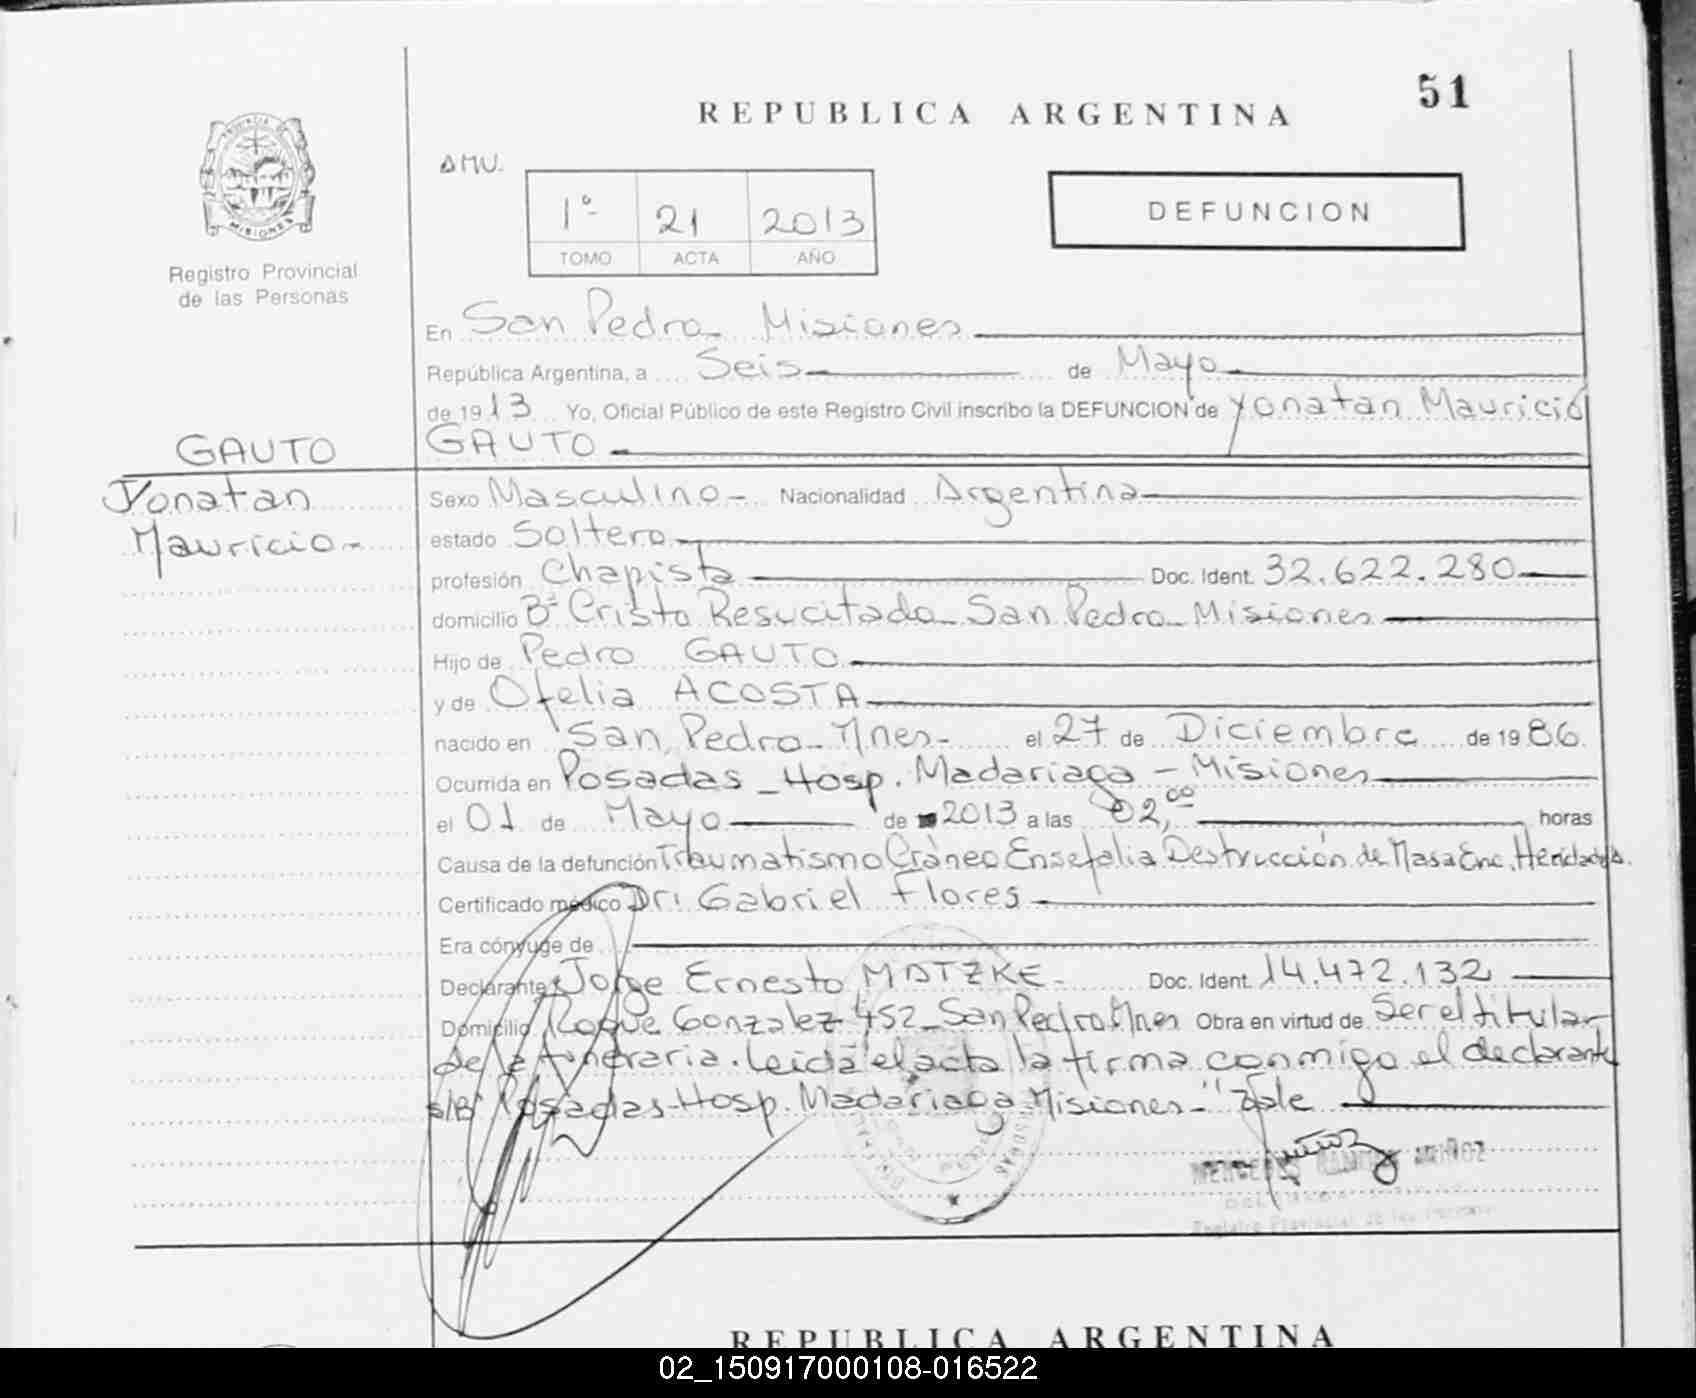 51
REPUBLICA ARGENTINA
PROVINCIA DE
MISIONES
Registro Provincial
de las Personas
AMU.
1º 21 2013
TOMO ACTA AÑO
DEFUNCION
En San Pedro - Misiones
República Argentina, a Seis de Mayo
de 1913 Yo, Oficial Público de este Registro Civil inscribo la DEFUNCION de Yonatan Mauricio
GAUTO
GAUTO
Yonatan
Mauricio-
Sexo Masculino- Nacionalidad Argentina
estado Soltero
profesión Chapista Doc. Ident. 32.622.280
domicilio Bº Cristo Resucitado - San Pedro - Misiones
Hijo de Pedro GAUTO
y de Ofelia ACOSTA
nacido en San Pedro - Mnes- el 27 de Diciembre de 1986
Ocurrida en Posadas - Hosp. Madariaga - Misiones
el 01 de Mayo de 2013 a las 02,00 horas
Causa de la defunción Traumatismo Cráneo Ensefalia Destrucción de Masa Enc.
Certificado médico Dr: Gabriel Flores
Era cónyuge de
Declarante Jorge Ernesto MATZKE- Doc. Ident. 14.472.132
Domicilio Roque Gonzalez 452 - San Pedro Mnes Obra en virtud de Ser el titular
de la funeraria. Leida el acta la firma conmigo el declarante
s/Bº Posadas - Hosp. Madariaga Misiones - "Vale
MUÑOZ
REPUBLICA ARGENTINA
02_150917000108-016522